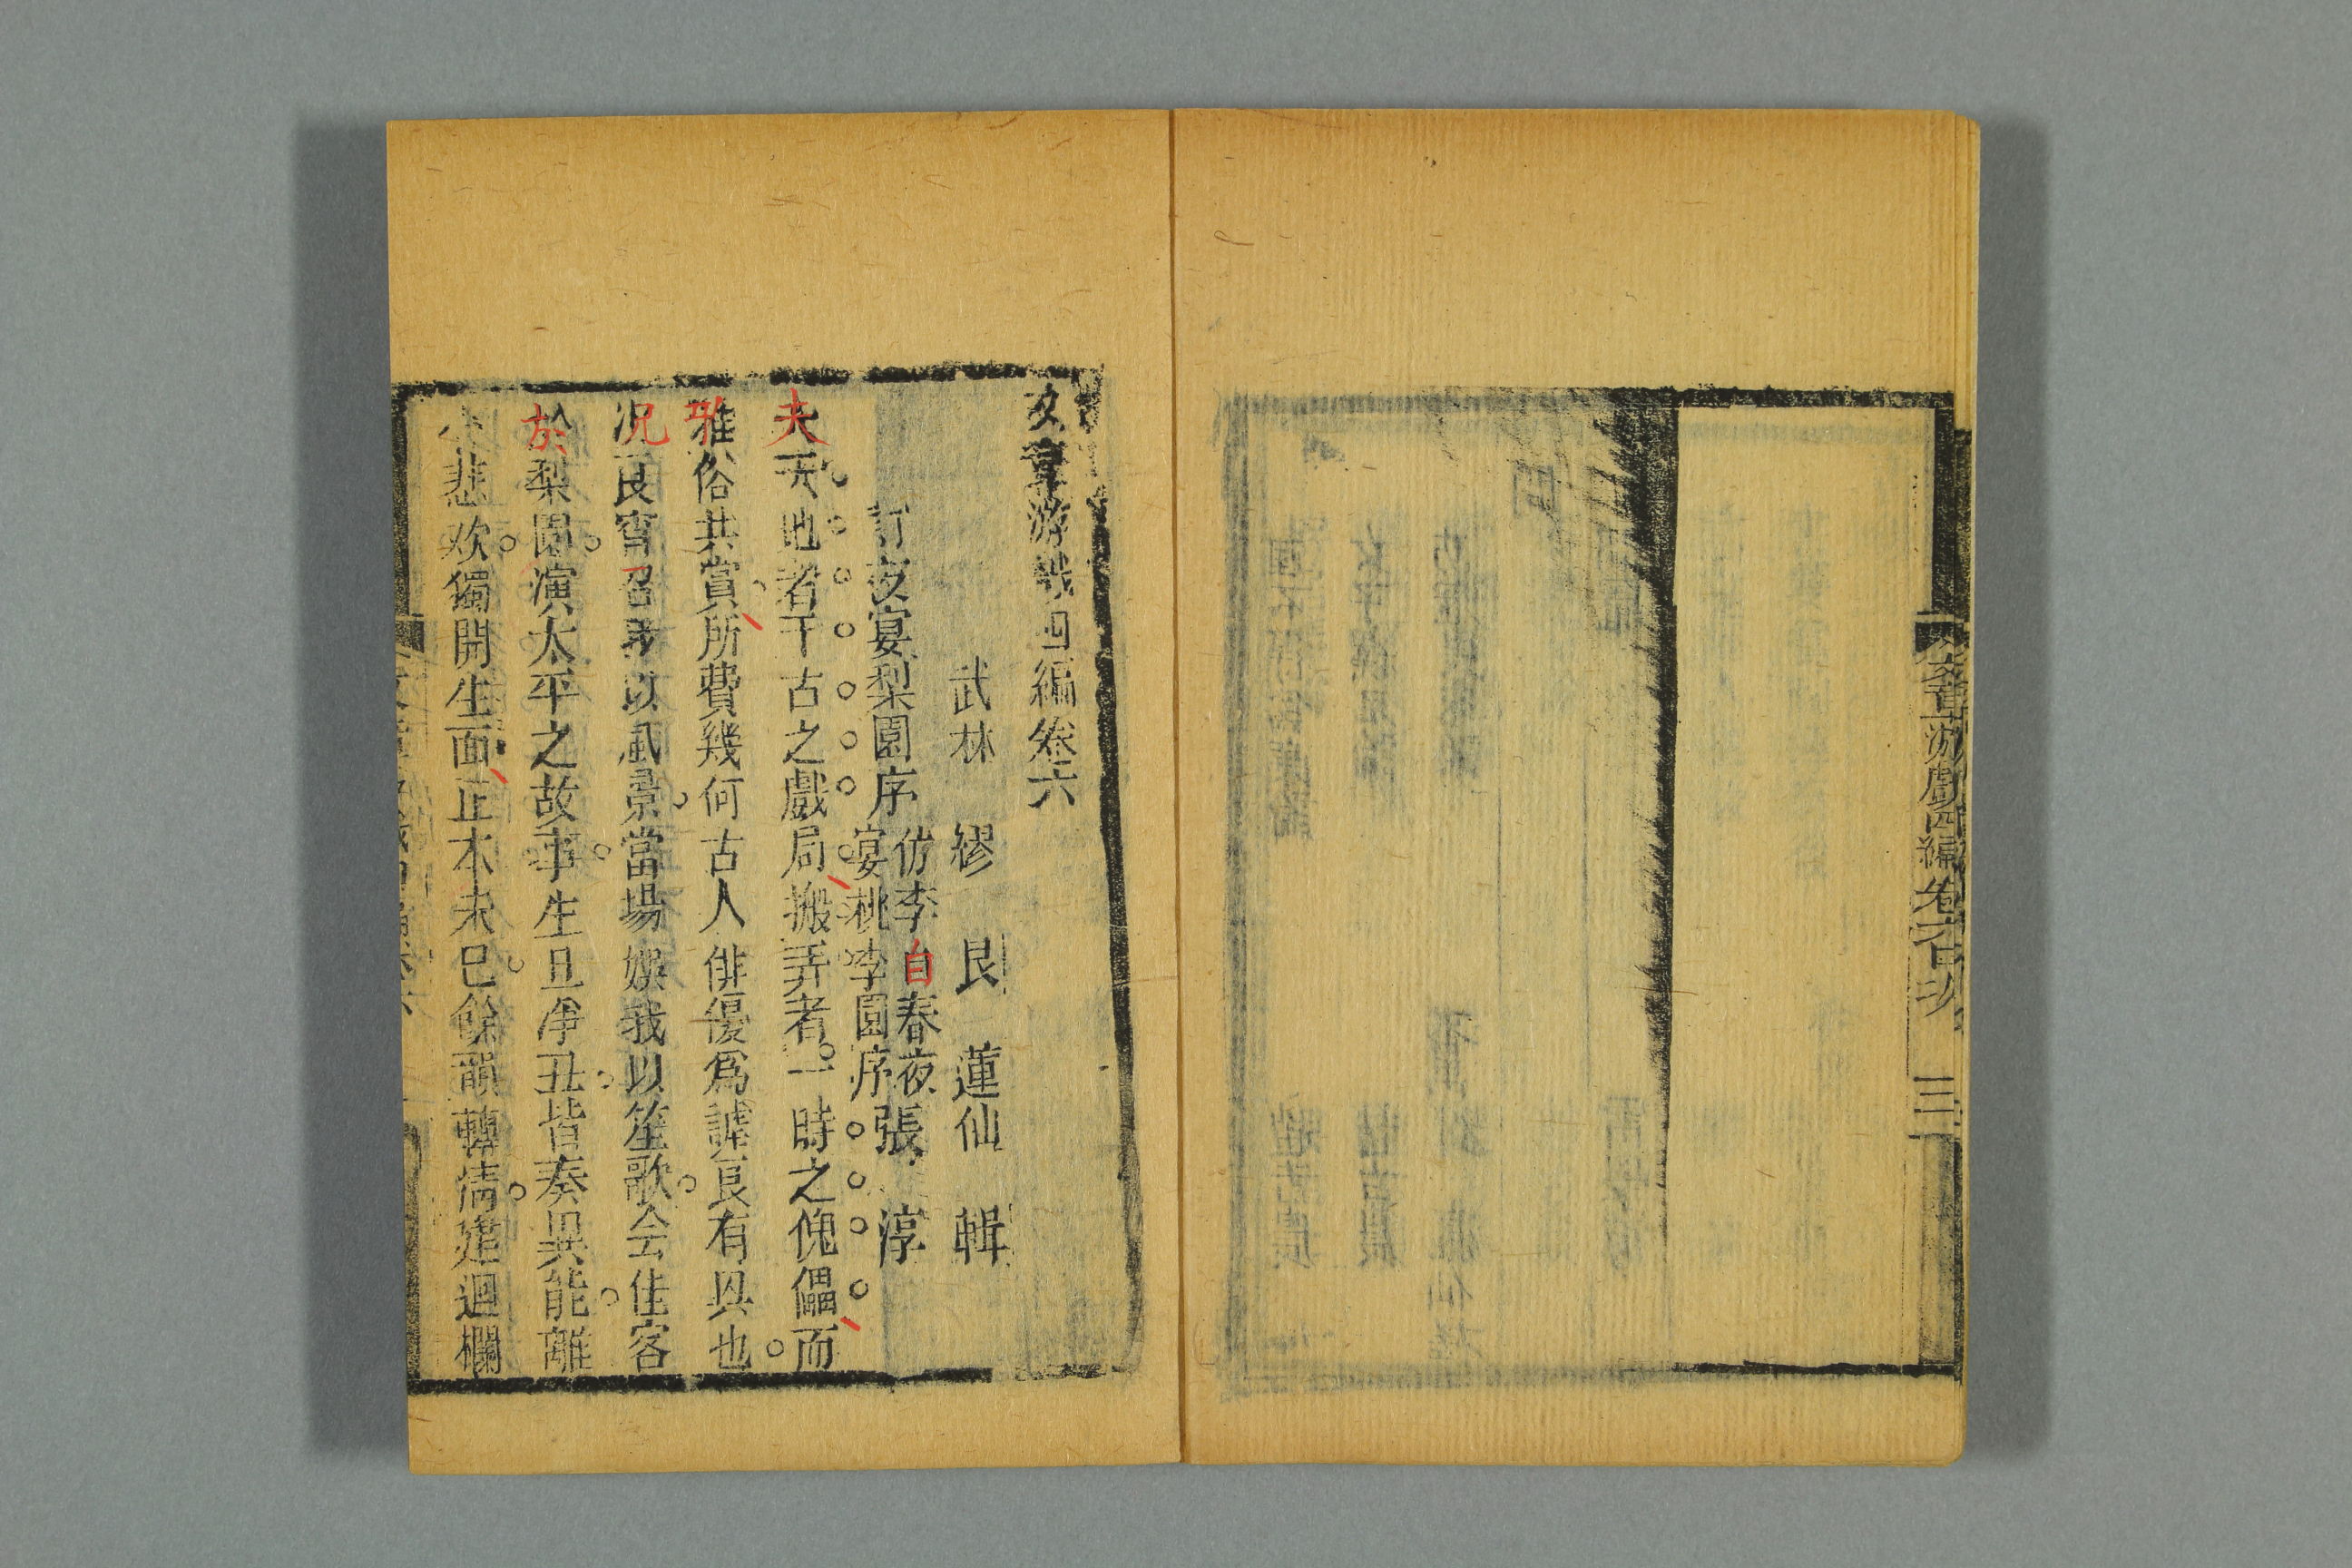 文章游戲四編卷六目次 三
文章游戲四編卷六
武林 繆 艮 蓮仙 輯
訂夜宴梨園序 仿李白春夜宴桃李園序 張 淳
夫天地者千古之戲局搬弄者一時之傀儡而
雅俗共賞所費幾何古人俳優爲謔良有㠯也
況良宵召我以風景當場娛我以笙歌会佳客
於梨園演太平之故事生旦淨丑皆奏異能離
悲歡獨開生面正本未已餘韻轉清筵迴欄